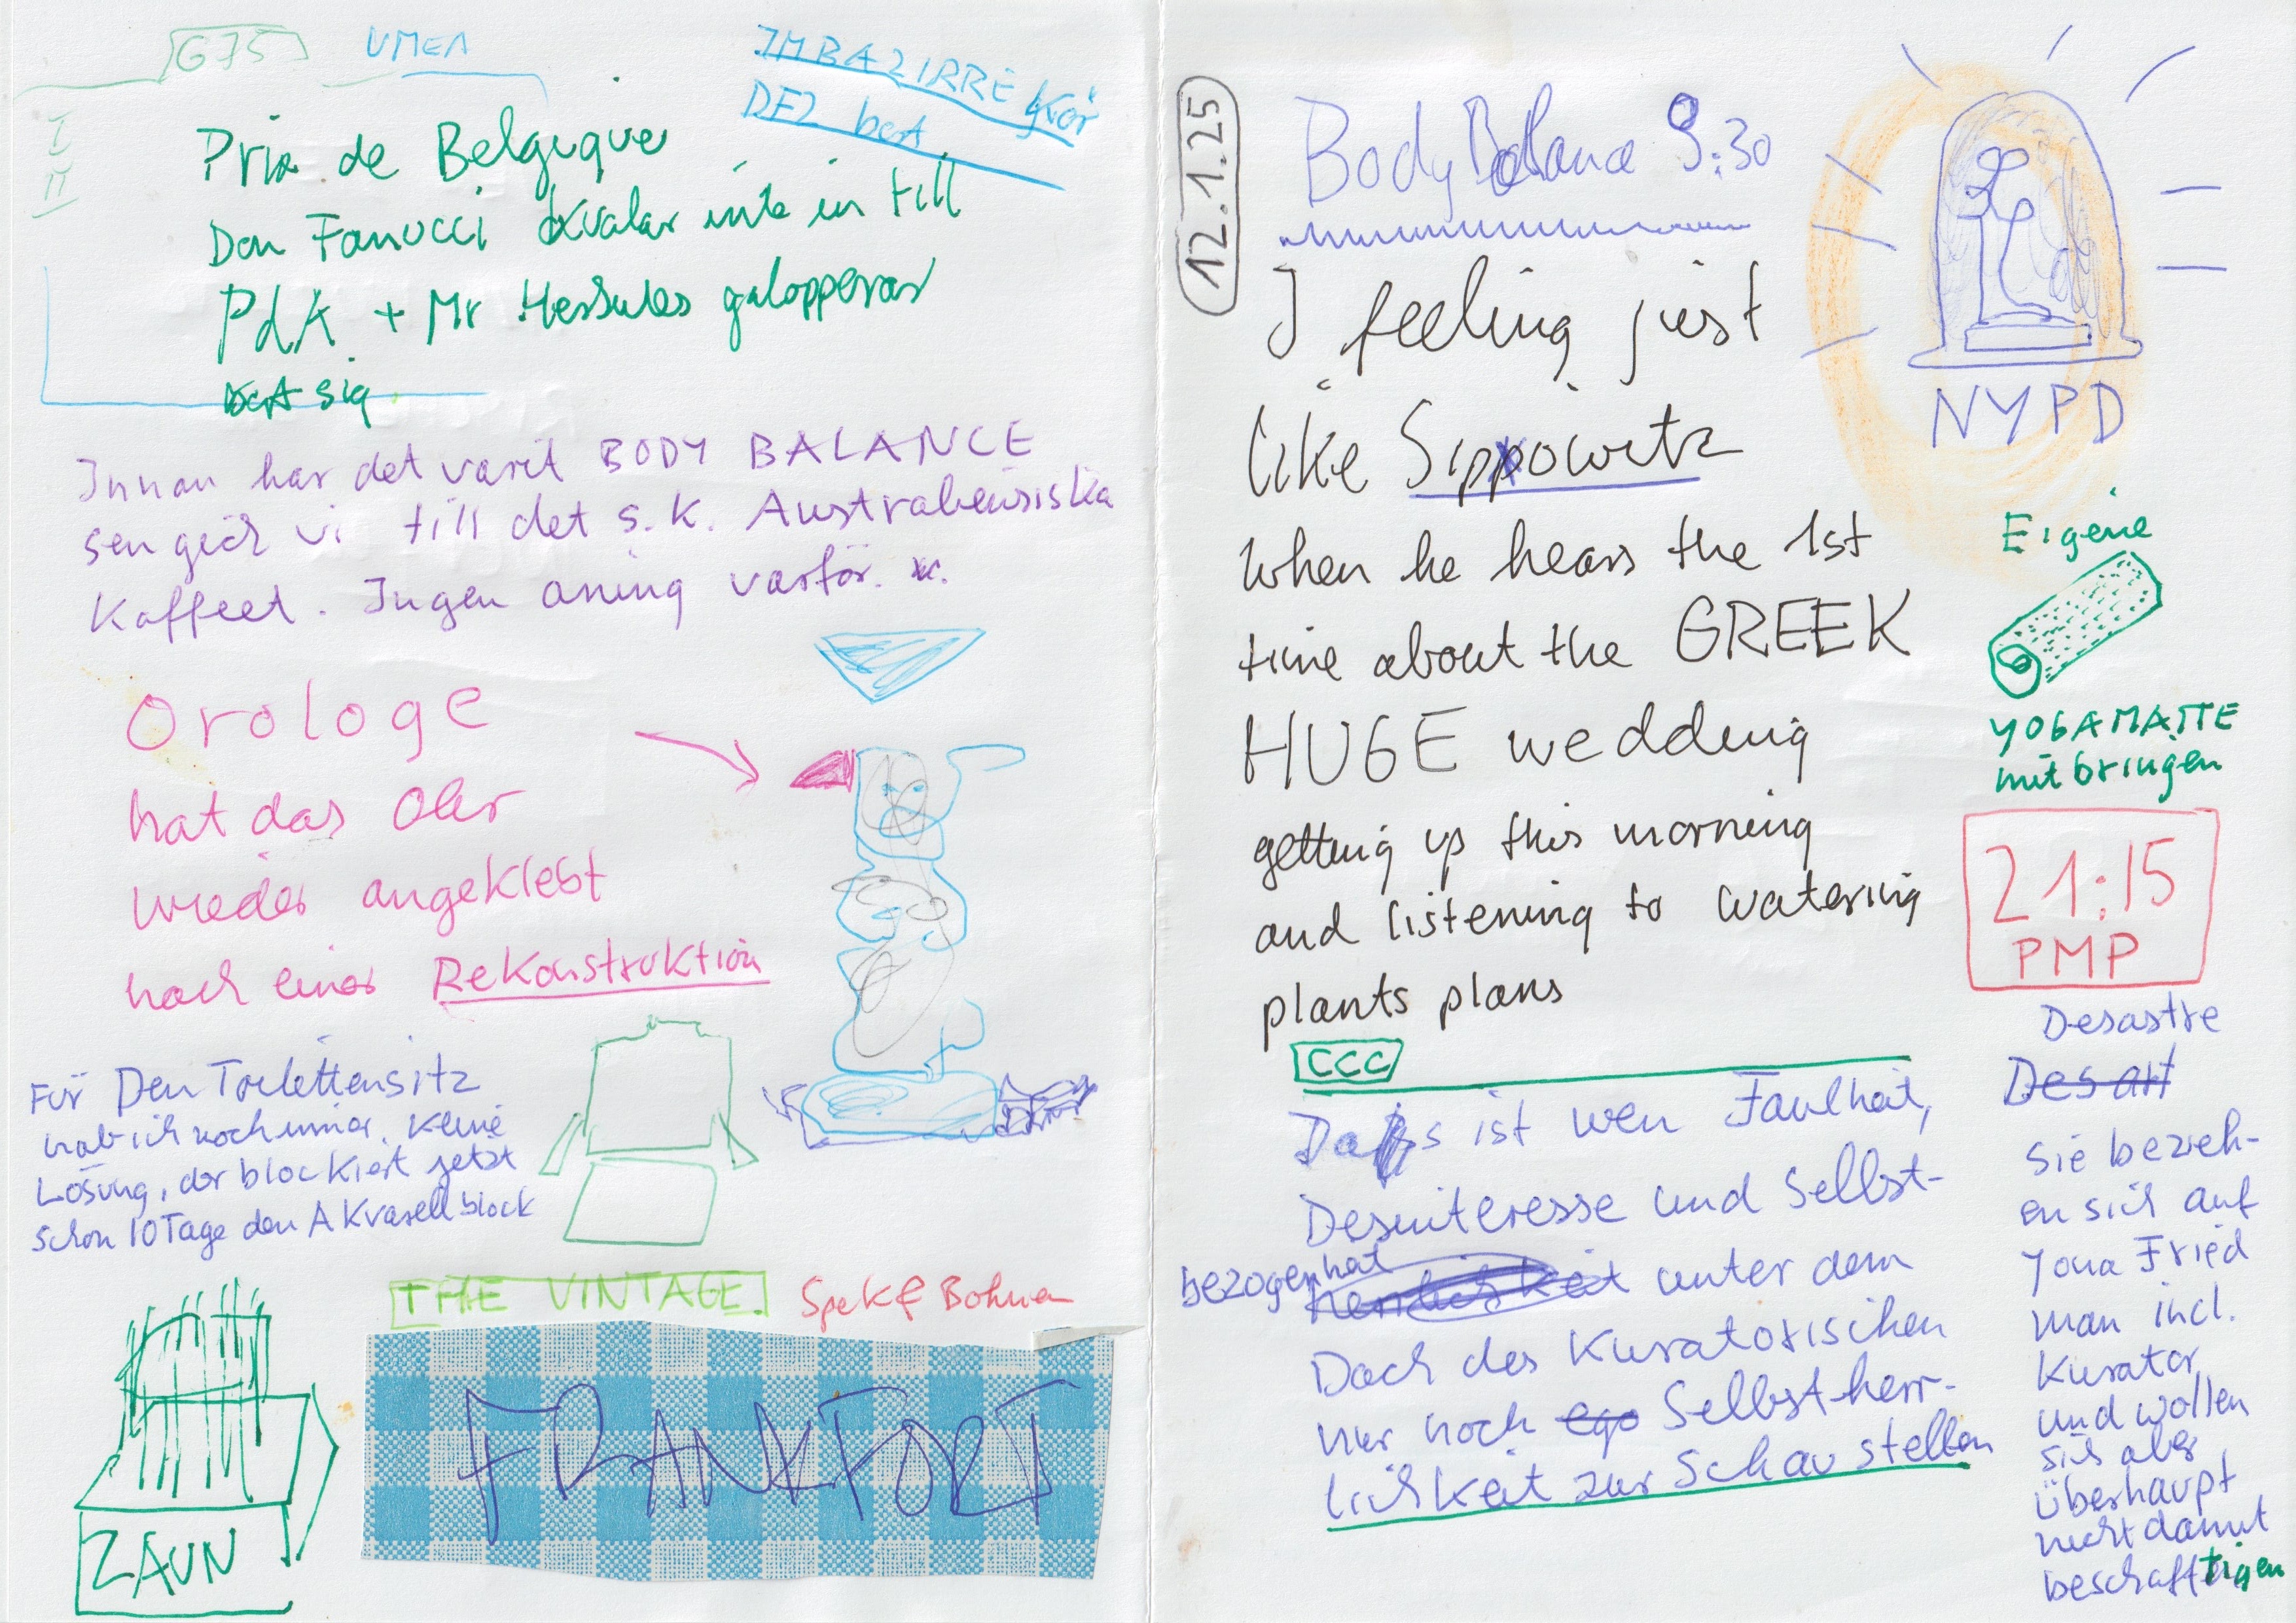 G75
UMEA
I
II
DEZ bort
Prix de Belgique
Don Fanucci kvalar inte in till
PdA + Mr Herkules galopperar
bort sig
Innan har det varit BODY BALANCE
sen gick vi till det s.k. Australiensiska
Kaffeet. Ingen aning varför.
Orologe
hat das Ohr
wieder angeklebt
nach einer Rekonstruktion
Für Den Toilettensitz
hab ich noch immer keine
Lösung, der blockiert jetzt
schon 10 Tage den AKvarellblock
THE VINTAGE.
Spek & Bohnen
ZAUN
FRANKFORT
12.1.25
Body Balance 9:30
NYPD
I feeling just
like Sippowitz
when he hears the 1st
time about the GREEK
HUGE wedding
getting up this morning
and listening to watering
plants plans
Eigene
YOGAMATTE
mitbringen
21:15
PMP
CCC
Das ist wen Faulheit,
Desinteresse und Selbst-
bezogenhait unter dem
Dach des Kuratorischen
nur noch ego Selbstherr-
lichkeit zur Schau stellen
Desastre
Desart
Sie bezieh-
en sich auf
Yona Fried
man incl.
Kurator
und wollen
sich aber
überhaupt
nicht damit
beschafftigen